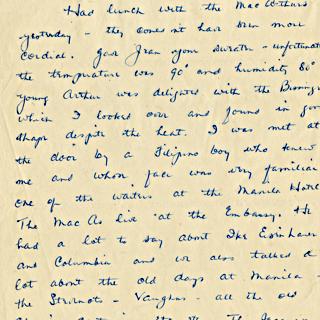 Had lunch with the MacArthurs
yesterday – they couldn't have been more
cordial. Gave Jean your – unfortunate
the temperature was 90° and humidity 80°
young Arthur was delighted with the
which I looked over and found in good
shape despite the heat. I was met at
the door by a Filipino boy who knew
me and whose face was very familiar
one of the waiters at the Manila Hote
The MacAs live at the Embassy. He
had a lot to say about Ike Eisenhower
and Columbia and we also talked a
lot about the old days at Manila –
the – Vaughns – all the old